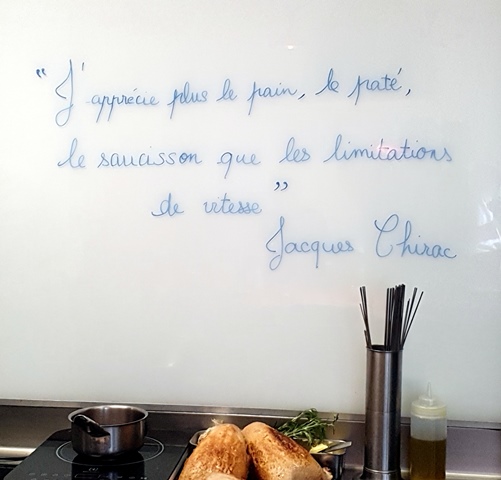 "J'apprécie plus le pain, le paté,
le saucisson que les limitations
de vitesse"
Jacques Chirac